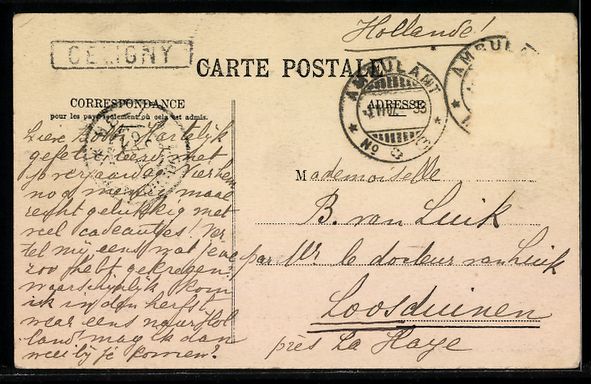 Hollande!
CELIGNY
CARTE POSTALE
AMBULANT
No
AMBULAN
CORRESPONDANCE
pour les pays seulement où cela est admis.
ADRESSE
Lieve Hartelijk
gefeliciteerd met
je verjaardag
nog maar
recht gelukkig met
veel cadeautjes! Ver
tel mij eens wat je
zoo hebt gekregen?
waarschijnlijk kom
ik in den herfst
weer eens naar Hol
land! mag ik dan
bij je komen?
Mademoiselle
B. van Luik
par Mr le docteur van Luik
Loosduinen
près La Haye